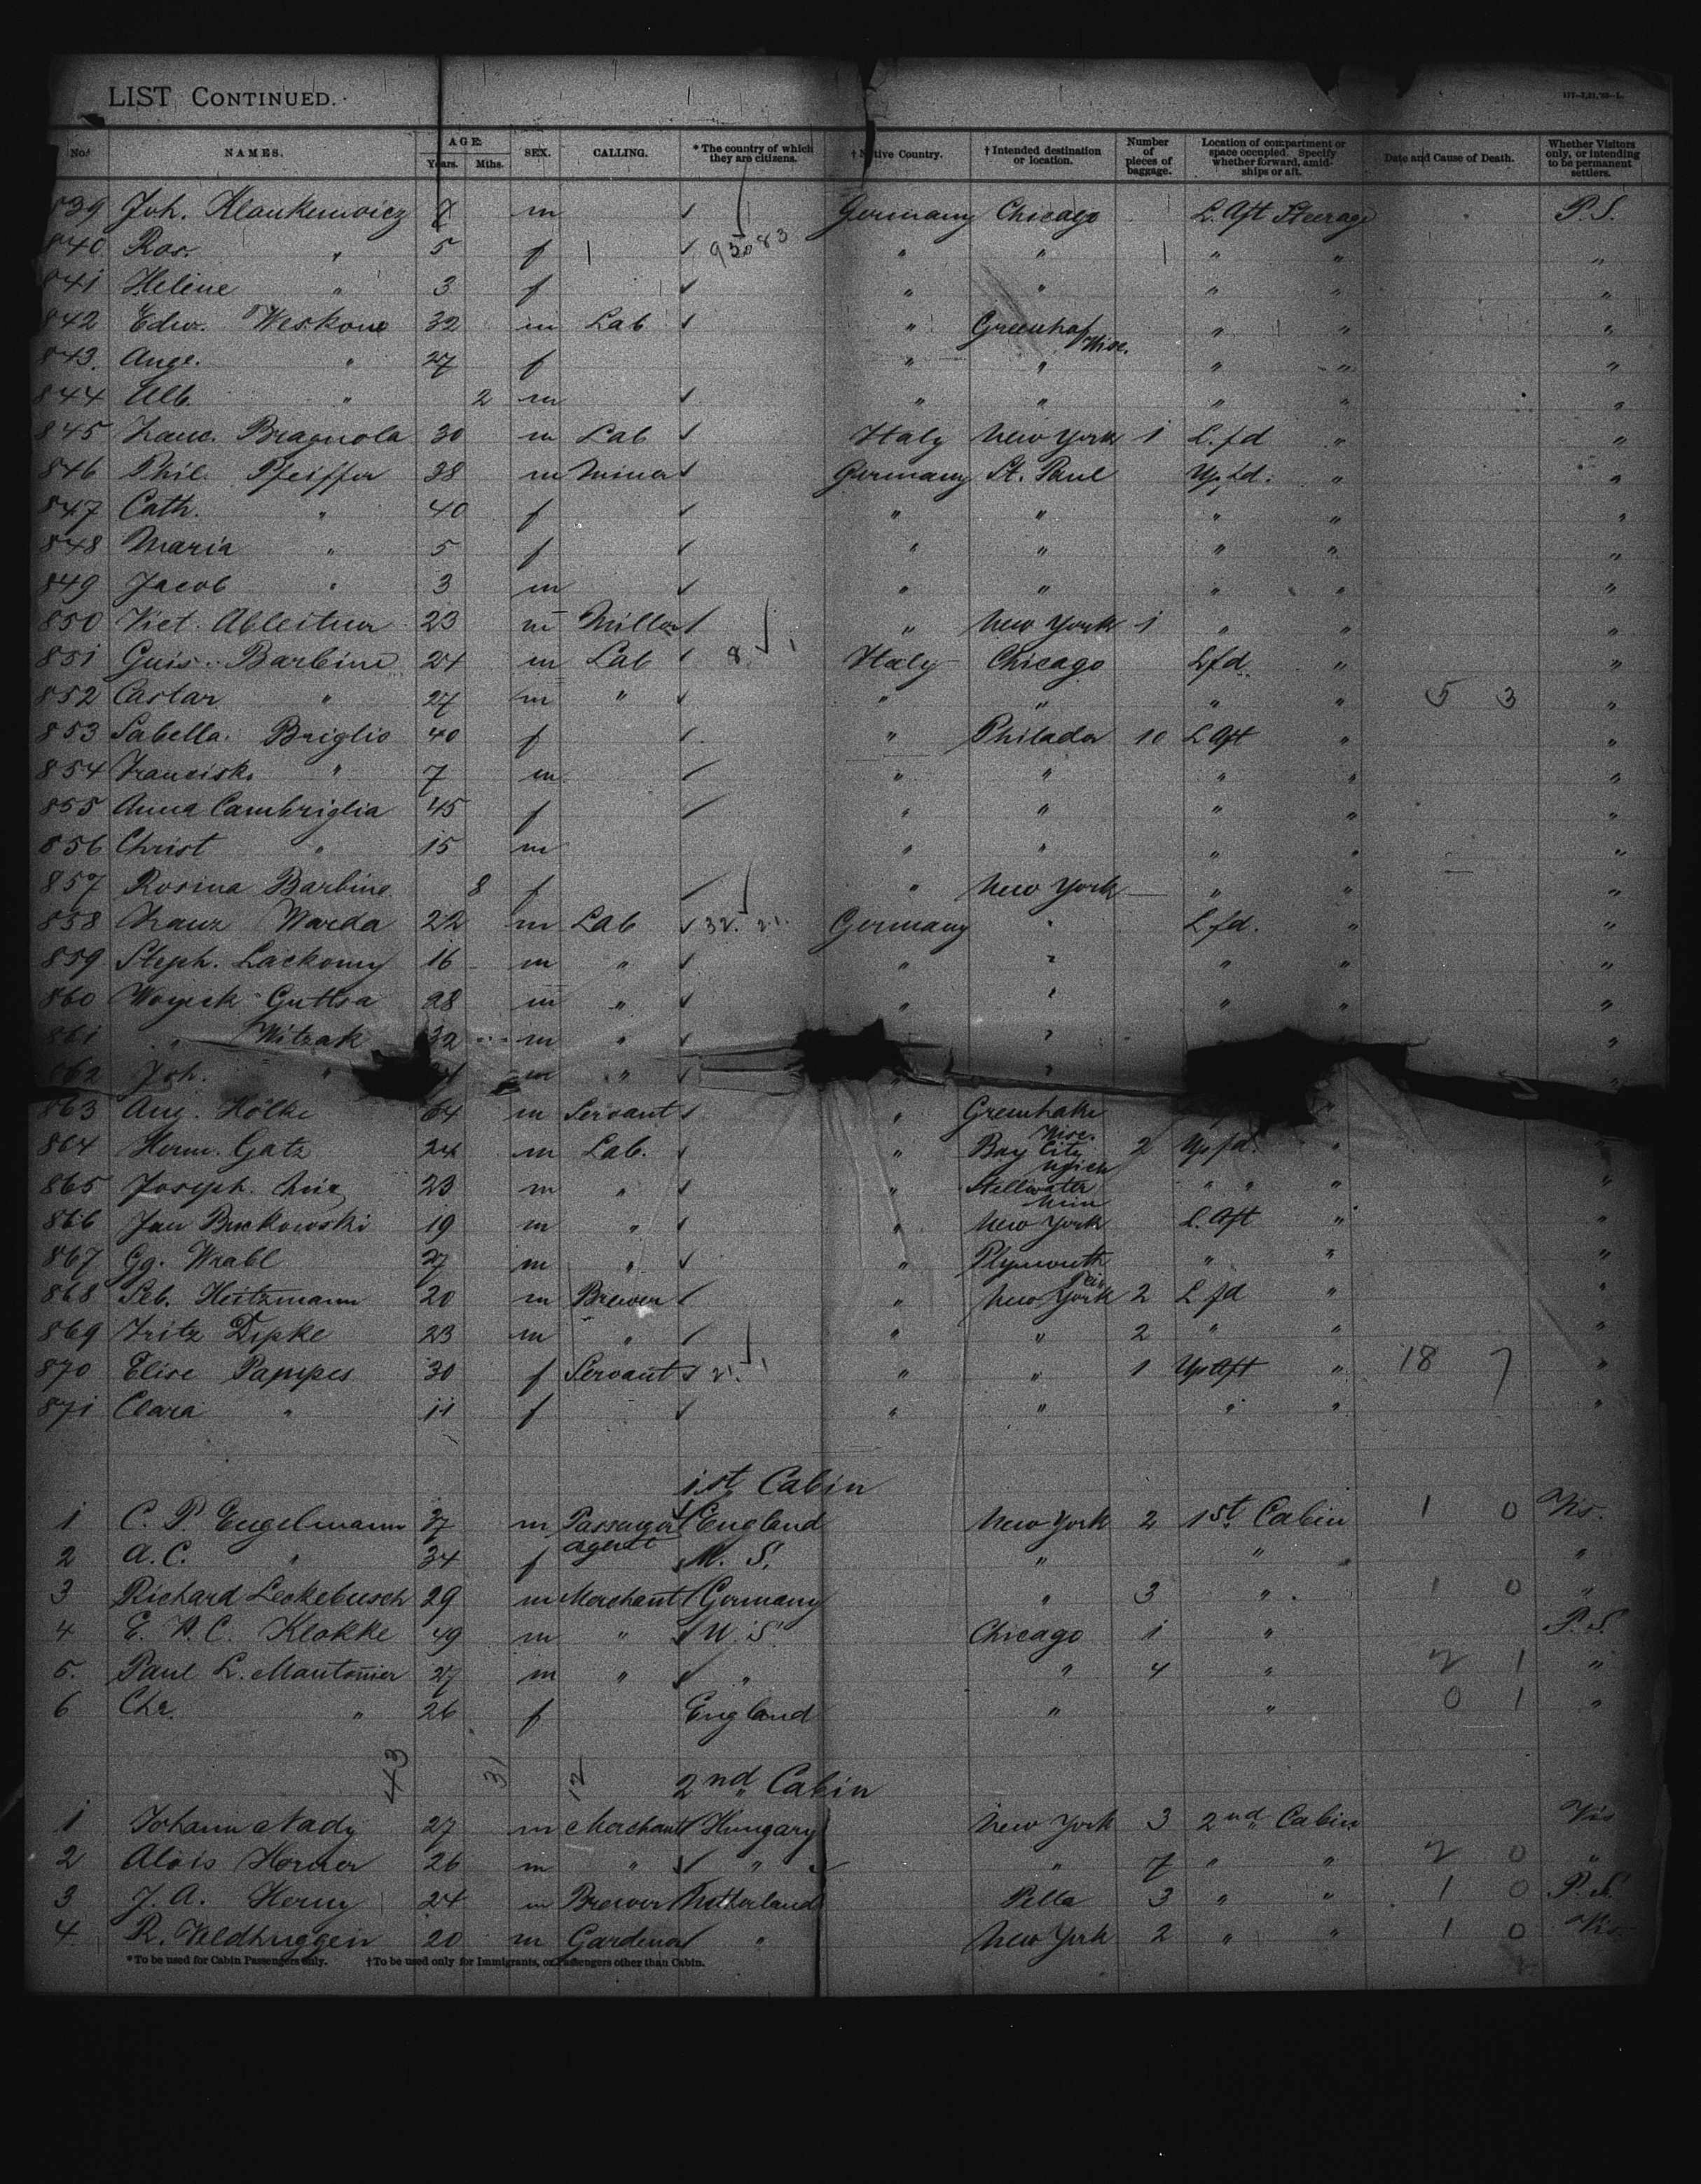 LIST CONTINUED.
No. NAMES. AGE. Years. Mths. SEX. CALLING. * The country of which they are citizens. † Native Country. † Intended destination or location. Number of pieces of baggage. Location of compartment or space occupied. Specify whether forward, amidships or aft. Date and Cause of Death. Whether Visitors only, or intending to be permanent settlers.
839 Joh. Klankenwoicz 7 m ✓ Germany Chicago L. Aft Steerage P.S.
840 Ros. " 5 f ✓ " " " " "
841 Helene " 3 f ✓ " " " " "
842 Edw. Weskone 32 m Lab ✓ " Greenhaf Wisc. " " "
843. Auge. " 27 f " " " " "
844 Alb. " 2 m ✓ " " " " "
845 Franc. Bragnola 30 m Lab ✓ Italy New York 1 L. fd " "
846 Phil. Pfeiffer 38 m Miner ✓ Germany St. Paul Up. fd. " "
847 Cath. " 40 f ✓ " " " " "
848 Maria " 5 f ✓ " " " " "
849 Jacob " 3 m ✓ " " " " "
850 Vict. Ableitner 23 m Miller ✓ " New York 1 " " "
851 Guis. Barbine 24 m Lab ✓ 8 Italy Chicago L fd. " "
852 Castar " 27 m " ✓ " " " " 5 3 "
853 Sabella. Briglio 40 f ✓ " Philader 10 L Aft " "
854 Francisk. " 7 m ✓ " " " " "
855 Anna Cambriglia 45 f ✓ " " " " "
856 Christ " 15 m " " " " "
857 Rosina Barbine 8 f ✓ " New York " " "
858 Franz Warda 22 m Lab ✓ 32. 21. Germany " L. fd. " "
859 Steph. Lackomy 16 m " ✓ " " " " "
860 Woycek Guttsa 28 m " ✓ " " " " "
861 " Witzak 32 m " ✓ " "
862 Joh. " m " ✓ " " "
863 Aug. Hölke 64 m Servant ✓ " Greenhake Wisc. "
864 Herm. Gatz 24 m Lab. ✓ " Bay City Mich 2 Up fd. " "
865 Joseph. 23 m " ✓ " Stillwater Minn " " " "
866 Jan Buckowski 19 m " ✓ " New York L. Aft " "
867 Gg. Wrabl 27 m " ✓ " Plymouth Pen " " "
868 Seb. Heitzmann 20 m Brewer ✓ " New York 2 L fd " "
869 Fritz Dipke 23 m " ✓ " " 2 " " "
870 Elise Pampes 30 f Servant ✓ 21. " " 1 Up Aft " 18 7 "
871 Clara " 11 f ✓ " " " " "
1st Cabin
1 C. P. Engelmann 37 m Passenger agent ✓ England New York 2 1st Cabin 1 0 Vis.
2 A. C. " 34 f U. S. " " "
3 Richard Leckebusch 29 m Merchant ✓ Germany " 3 " 1 0 "
4 E. W. C. Klokke 49 m " ✓ U. S. Chicago 1 " P. S.
5. Paul L. Mantonier 27 m " ✓ " " 4 " 2 1 "
6 Chr. " 26 f England " " 0 1 "
43 31 12
2nd Cabin
1 Johann Nady 27 m Merchant ✓ Hungary New York 3 2nd Cabin Vis
2 Alois Horner 26 m " ✓ " " 7 " " 2 0 "
3 J. A. Horny 24 m Brewer Netherland Pella 3 " " 1 0 P. S.
4 R. Veldhuggen 20 m Gardener ✓ " New York 2 " " 1 0 Vis.
*To be used for Cabin Passengers only. †To be used only for Immigrants, or Passengers other than Cabin.